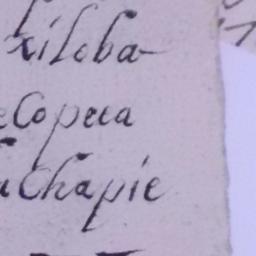 xiloba-
ecopeea
achapie